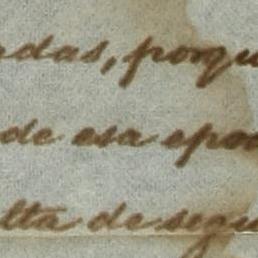 das, porqu
de esa epoc
lta de segu